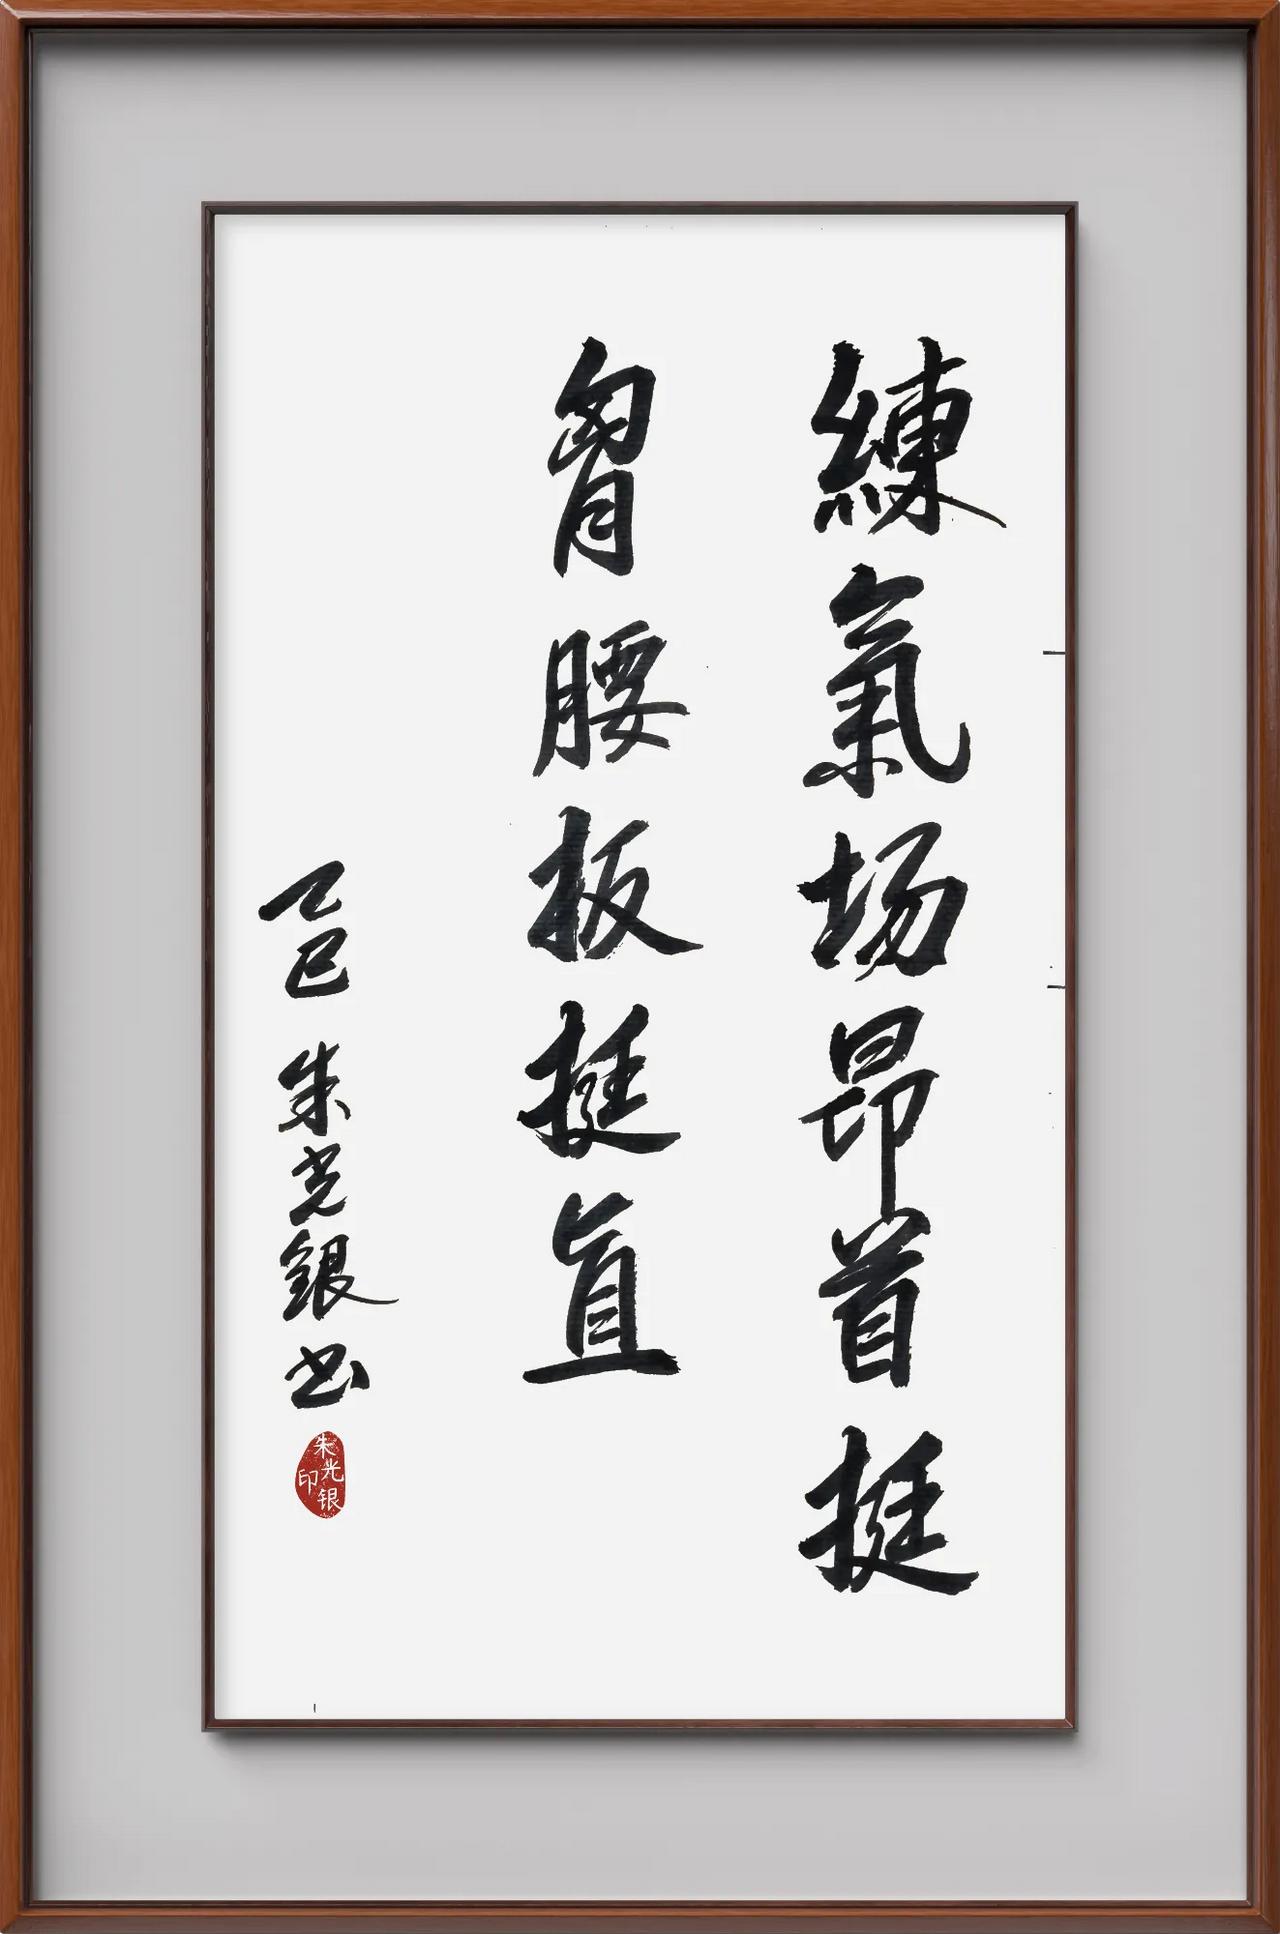 練氣场昂首挺
胷腰板挺直
乙巳 朱光银书
朱光银印